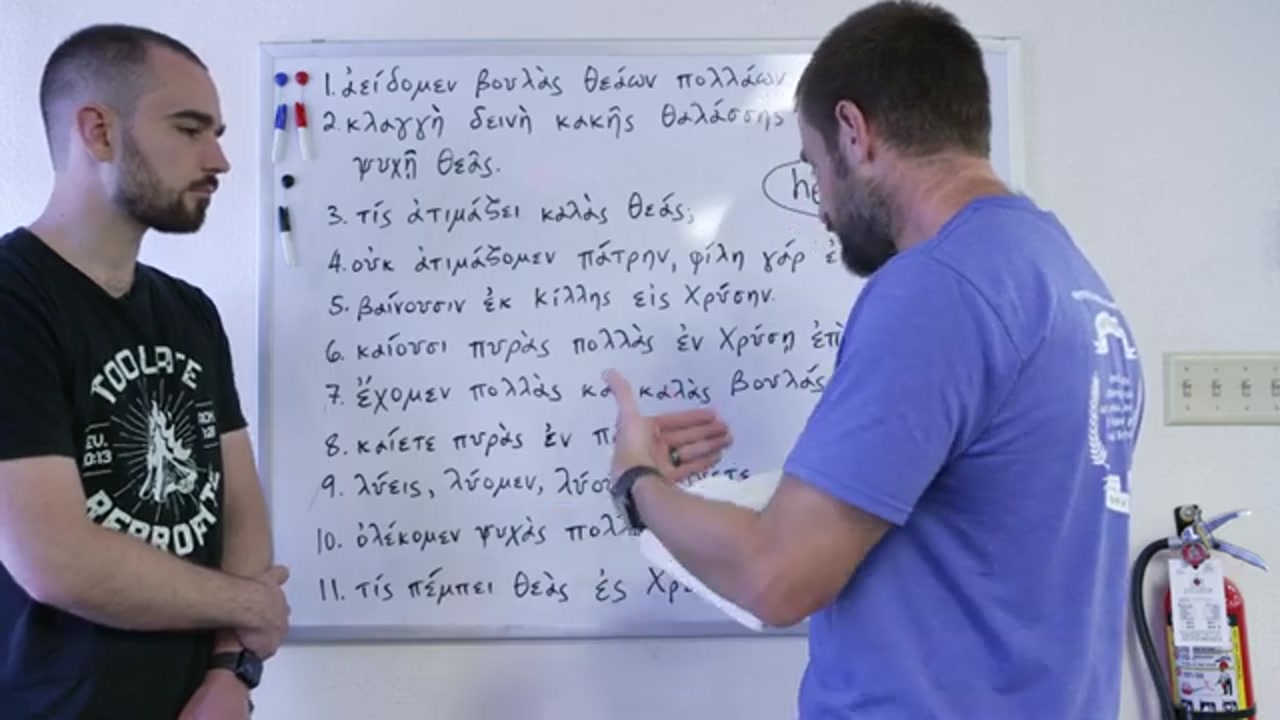 1. ἀείδομεν βουλὰς θεάων πολλάων
2. κλαγγὴ δεινὴ κακῆς θαλάσσης
ψυχῇ θεᾶς.
he
3. τίς ἀτιμάζει καλὰς θεάς;
4. οὐκ ἀτιμάζομεν πάτρην, φίλη γάρ
5. βαίνουσιν ἐκ Κίλλης εἰς Χρύσην.
6. καίουσι πυρὰς πολλὰς ἐν Χρύσῃ ἐπὶ
7. ἔχομεν πολλὰς καλὰς βουλάς
8. καίετε πυρὰς ἐν
9. λύεις, λύομεν,
10. ὀλέκομεν ψυχὰς
11. τίς πέμπει θεὰς ἐς
TOO LATE
REPROFITE